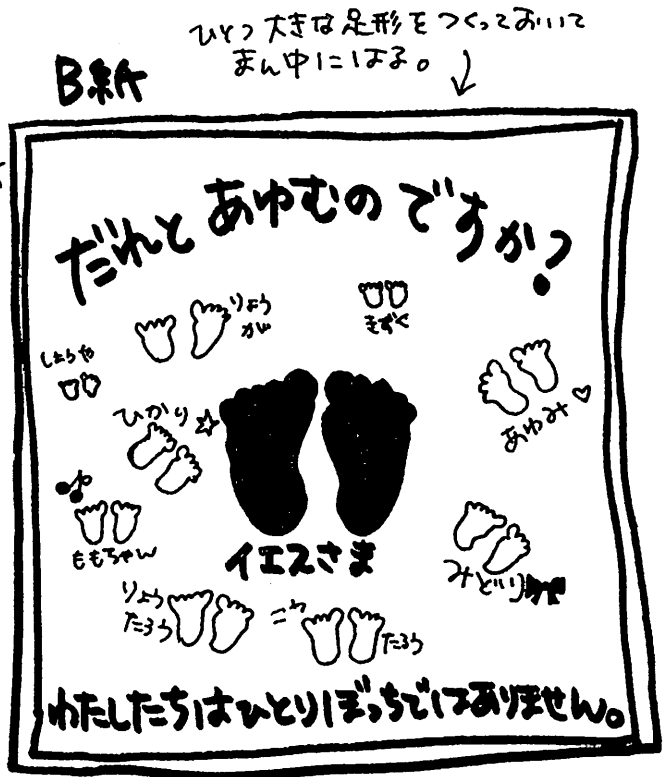 ひとつ大きな足形をつくっておいて
まん中にはる。
B紙
だれとあゆむのですか?
りょう
が
きずく
しおらや
ひかり
あゆみ
ももちゃん
イエスさま
みどり
りょう
たろう
こう
たろう
わたしたちはひとりぼっちではありません。